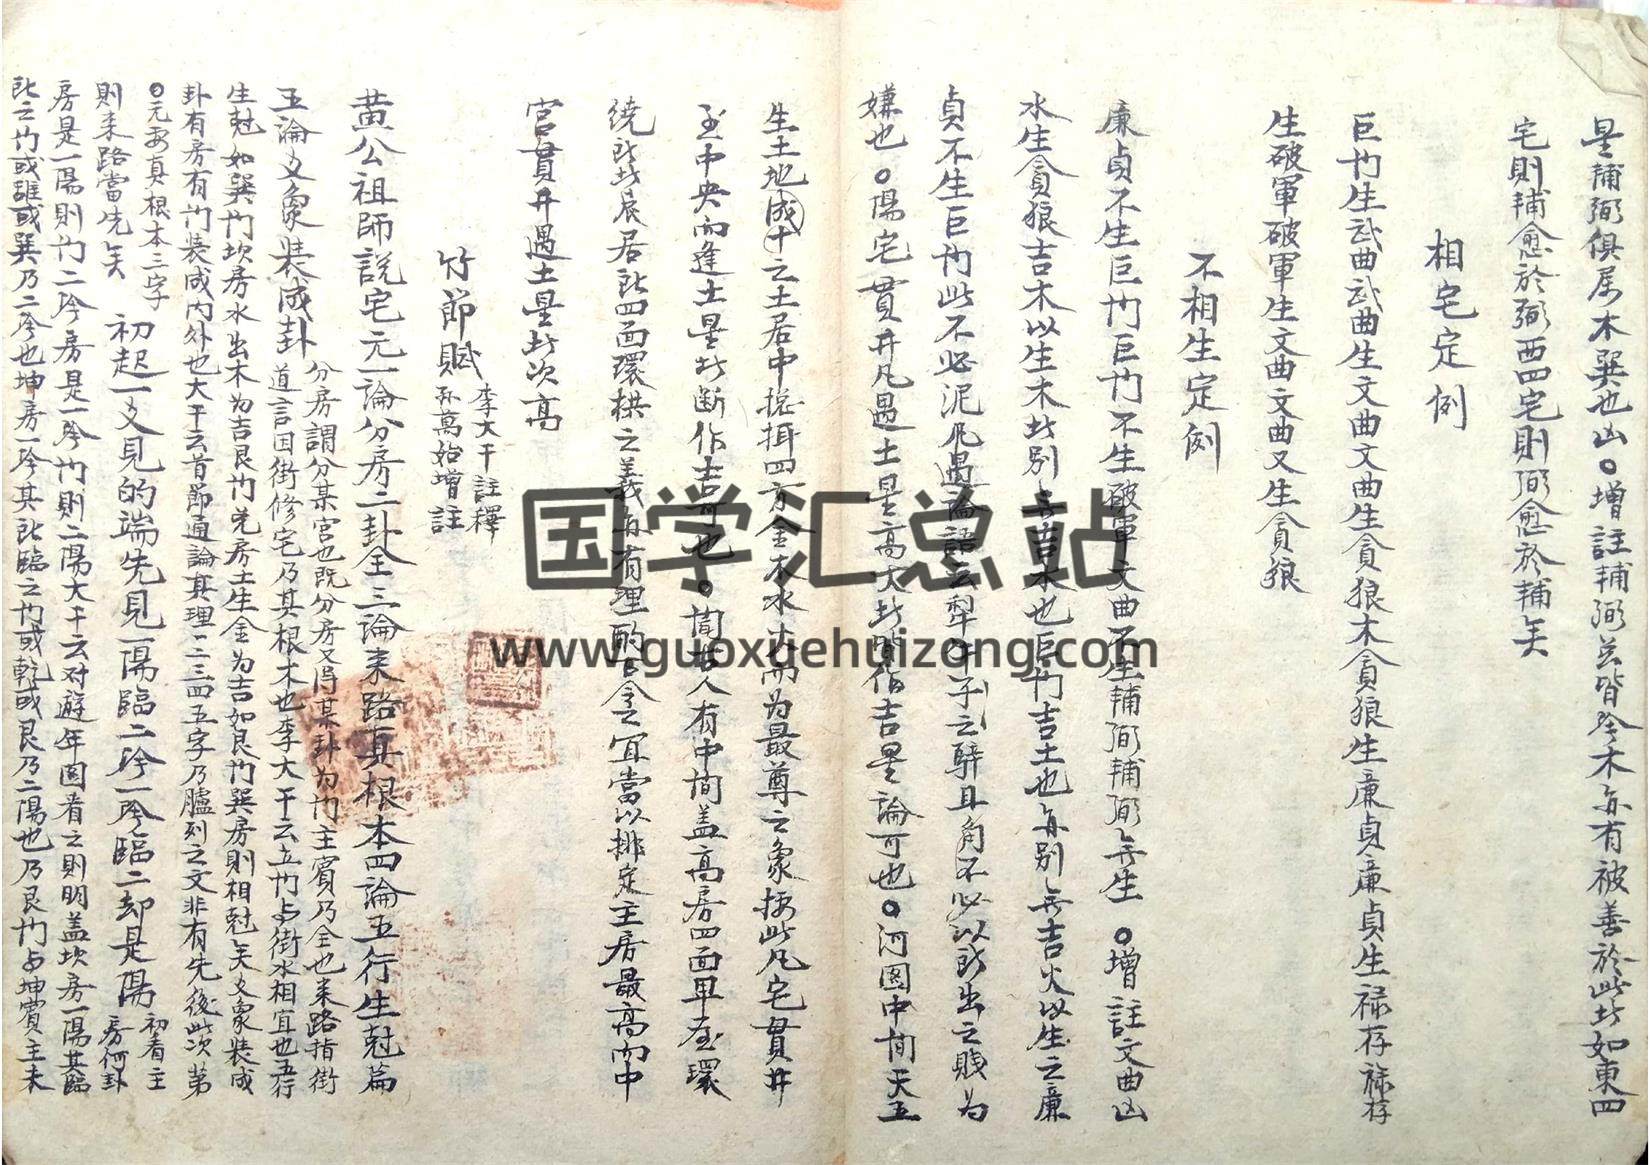 星輔弼俱属木巽也凶○增註輔弼並皆阴木亦有被善於此处如東四
宅則輔愈於弼西四宅則弼愈於輔矣
相宅定例
巨门生武曲武曲生文曲文曲生貪狼木貪狼生廉貞廉貞生禄存禄存
生破軍破軍生文曲文曲又生貪狼
不相生定例
廉貞不生巨门巨门不生破軍文曲不生輔弼輔弼无生○增註文曲凶
水生貪狼吉木以生木此别无吉木也巨门吉土也亦别无吉火以生之廉
貞不生巨门此不必泥凡遇論語云犁牛子之騂且角不必以所出之賤为
嫌也○陽宅貫井凡遇土星高大此間作吉星論可也○河图中间天五
生土地成十之土居中挖揖四方金木水火而为最尊之象按此凡宅貫井
至中央而逢土星此断作吉可也○間指人有中间盖高房四面卑屋環
绕所此辰居所四面環拱之義自有理的古今宜當以排定主房最高而中
宫貫井遇土星此次高
竹節賦 李大干註釋 孙萬始增註
黄公祖師説宅元一論分房二卦全三論来路真根本四論五行生尅篇
五論爻象裝成卦 分房謂分某宫也既分房又得某卦为门主賓乃全也来路指街
道言因街修宅乃其根木也李大干云立门与街水相宜也五行
生尅如巽门坎房水出木为吉艮门兑房土生金为吉如艮门巽房則相尅矣爻象裝成
卦有房有门裝成内外也大干云首節通論其理一二三四五字乃臚列之文非有先後此次第
○元要真根本三字
則来路當先矣 初起一爻見的端先見一陽臨二阴一阴臨二却是陽 初看主
房何卦
房是一陽則门二阴房是一阴门則二陽大干云对遊年图看之則明盖坎房一陽其臨
此之门或離或巽乃二阴也坤房一阴其所臨之门或乾或艮乃二陽也乃艮门与坤賓主未
国学汇总站
www.guoxuehuizong.com